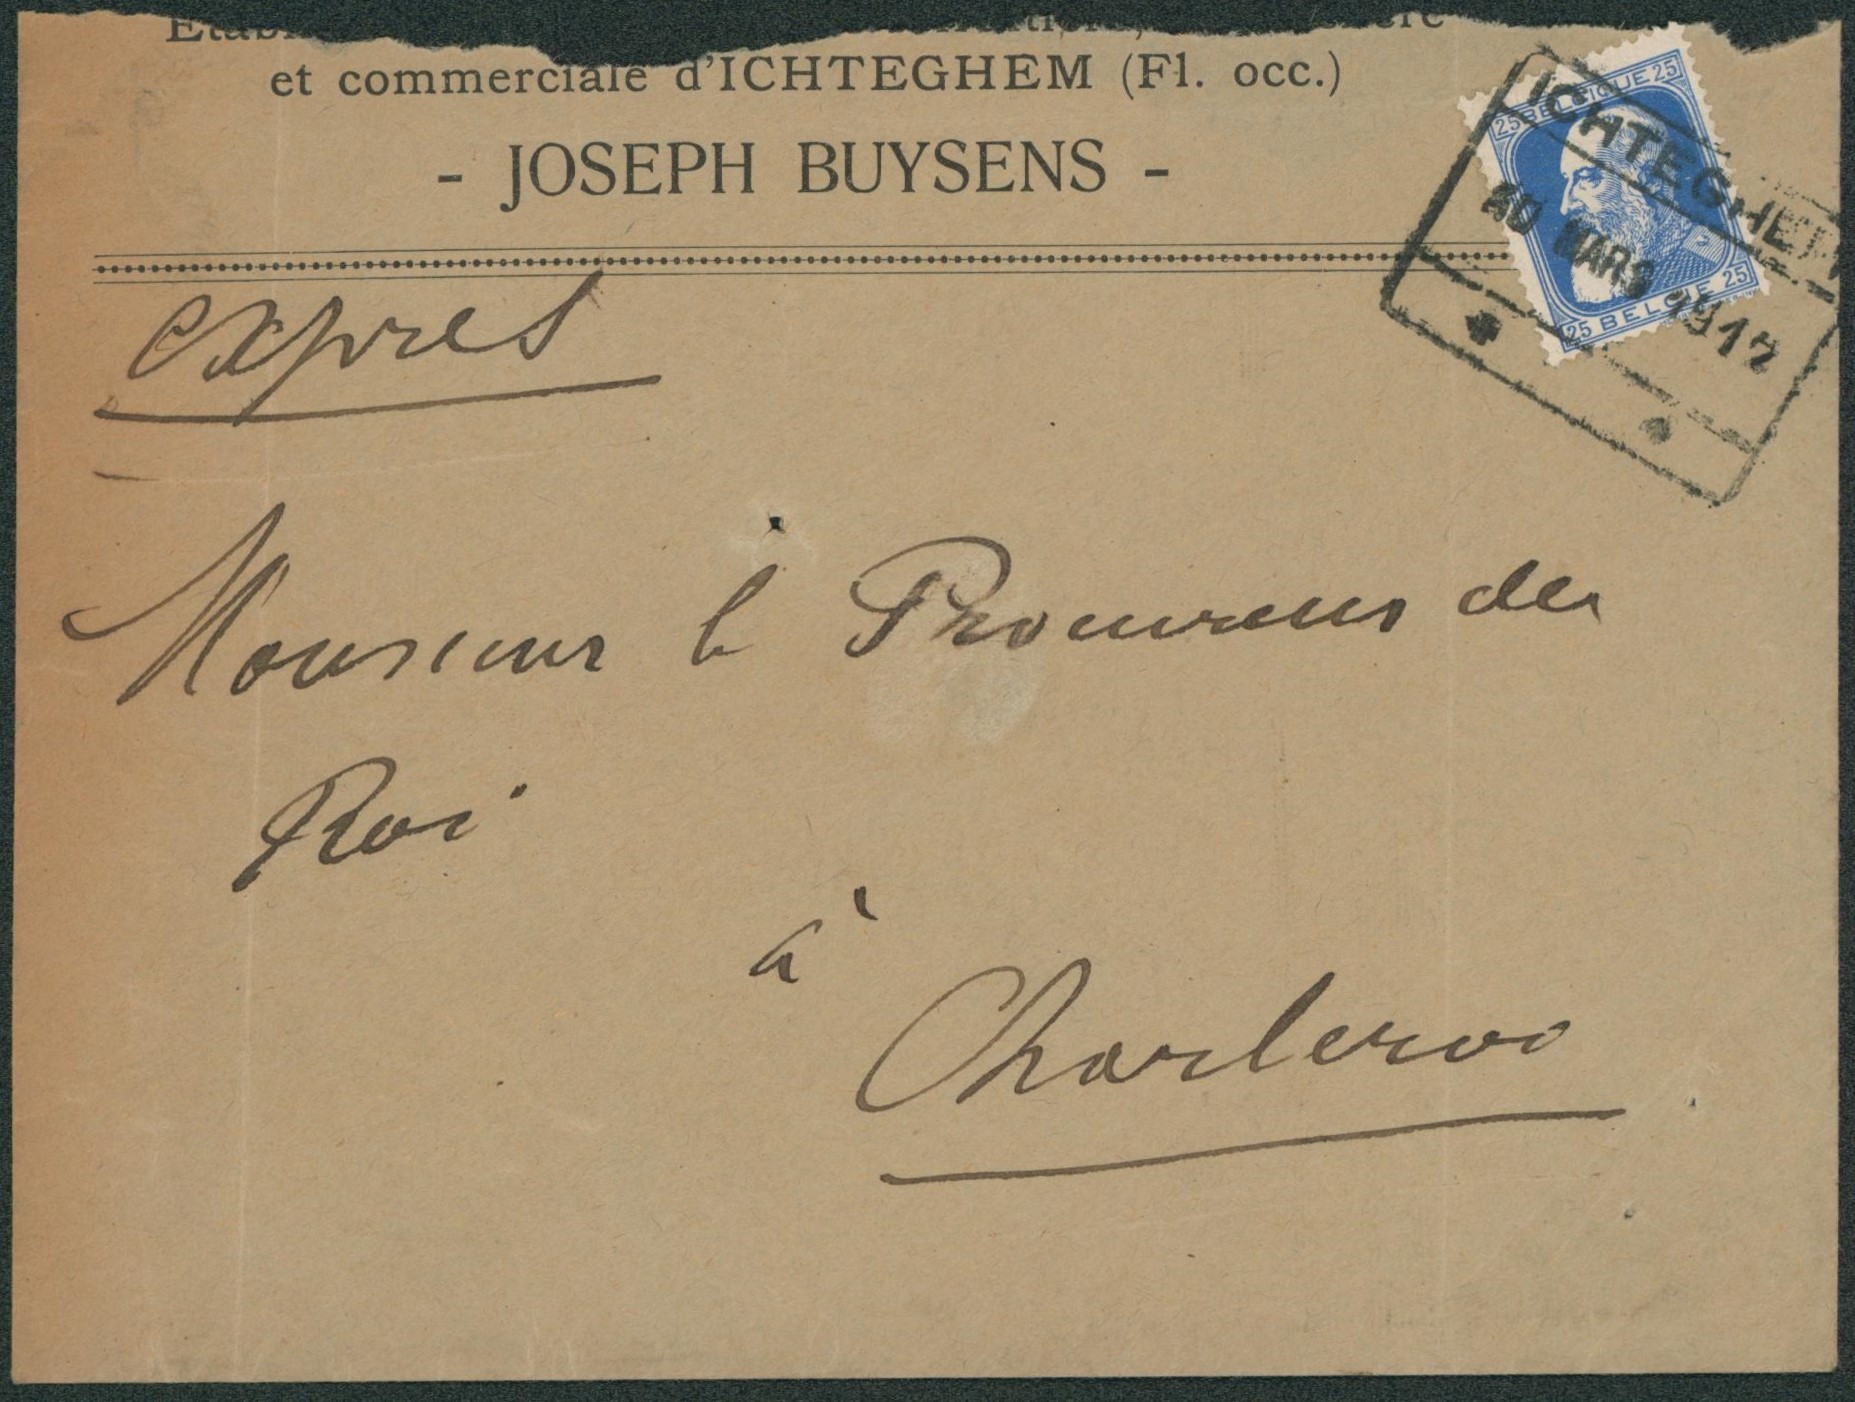 et commerciale d'ICHTEGHEM (Fl. occ.)
- JOSEPH BUYSENS -
25 BELGIQUE 25
25 BELGIE 25
ICHTEGHEM
MARS 1912
expres
Monsieur le Procureur du
Roi
à
Charleroi